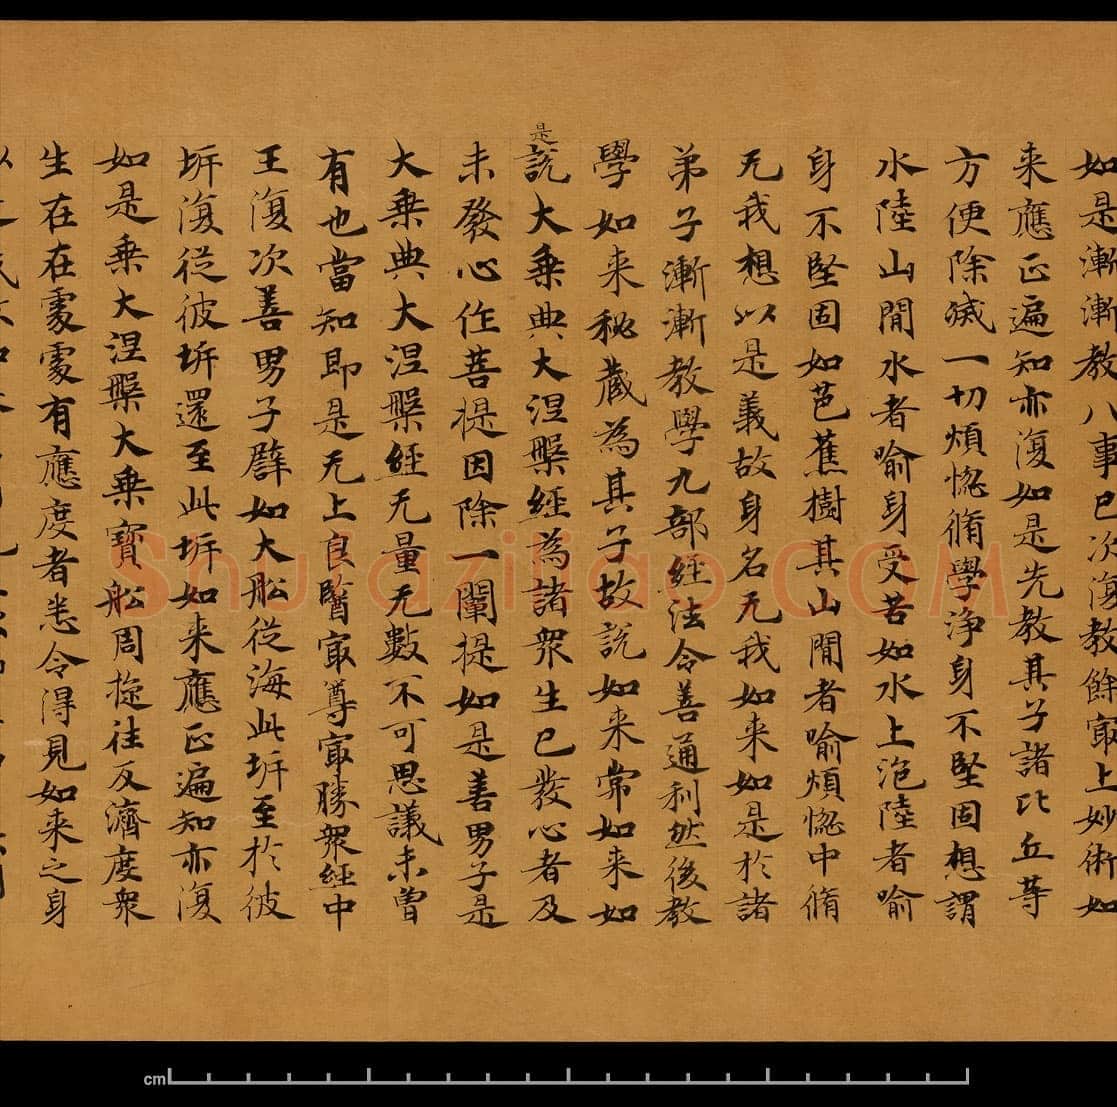 如是漸漸教八事已次復教餘㝡上妙術如
来應正遍知亦復如是先教其子諸比丘等
方便除滅一切煩惚脩學淨身不堅固想謂
水陸山閒水者喻身受苦如水上泡陸者喻
身不堅固如芭蕉樹其山閒者喻煩惚中脩
无我想以是義故身名无我如来如是於諸
弟子漸漸教學九部經法令善通利然後教
學如来秘藏為其子故説如来常如来如
是説大乗典大涅槃經為諸衆生已發心者及
未發心作菩提因除一闡提如是善男子是
大乗典大涅槃經无量无數不可思議未曽
有也當知即是无上良醫㝡尊㝡勝衆經中
王復次善男子譬如大舩従海此圻至於彼
圻復従彼圻還至此圻如来應正遍知亦復
如是乗大涅槃大乗寳舩周旋往反濟度衆
生在在處處有應度者悉令得見如来之身
Shufaziliao.COM
cm